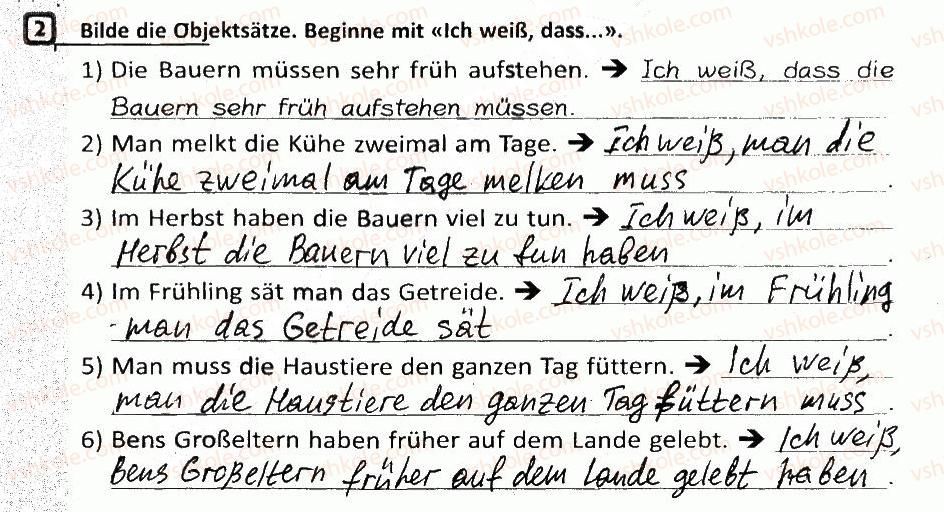 2 Bilde die Objektsätze. Beginne mit «Ich weiß, dass...».
1) Die Bauern müssen sehr früh aufstehen. → Ich weiß, dass die
Bauern sehr früh aufstehen müssen.
2) Man melkt die Kühe zweimal am Tage. → Ich weiß, man die
Kühe zweimal am Tage melken muss.
3) Im Herbst haben die Bauern viel zu tun. → Ich weiß, im
Herbst die Bauern viel zu tun haben.
4) Im Frühling sät man das Getreide. → Ich weiß, im Frühling
man das Getreide sät.
5) Man muss die Haustiere den ganzen Tag füttern. → Ich weiß,
man die Haustiere den ganzen Tag füttern muss.
6) Bens Großeltern haben früher auf dem Lande gelebt. → Ich weiß,
Bens Großeltern früher auf dem Lande gelebt haben.
vshkole.com